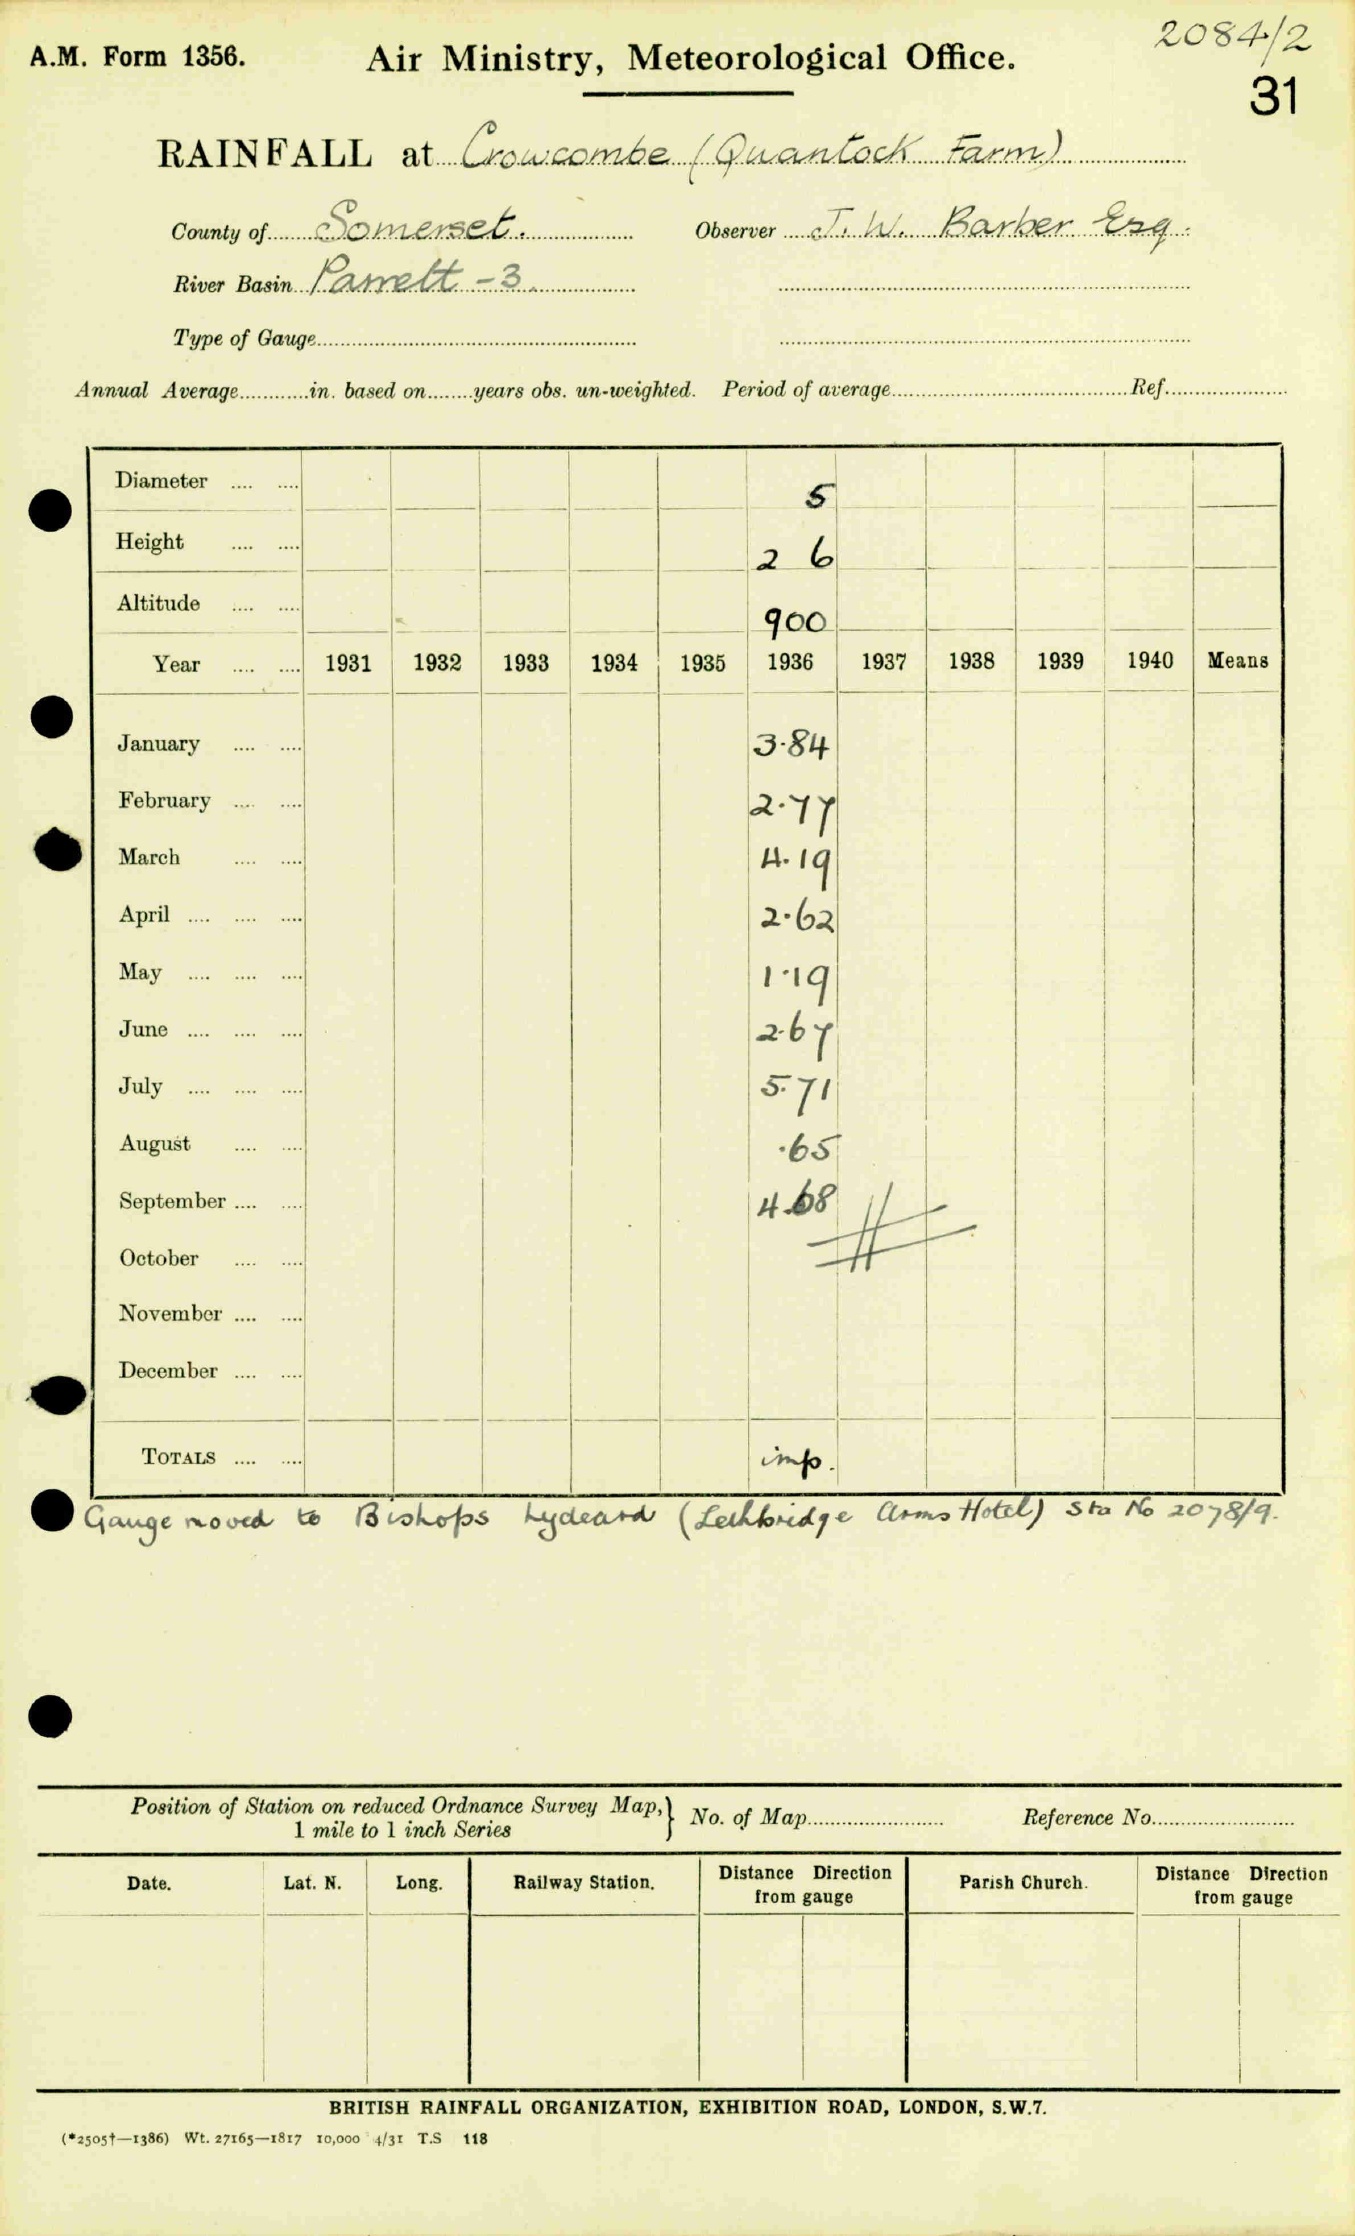 2084/2
A.M. Form 1356. Air Ministry, Meteorological Office.
31
RAINFALL at Crowcombe (Quantock Farm)
County of Somerset. Observer J. W. Barber Esq.
River Basin Parrett - 3.
Type of Gauge
Annual Average in. based on years obs. un-weighted. Period of average Ref.
Diameter 5
Height 2 6
Altitude 900
Year 1931 1932 1933 1934 1935 1936 1937 1938 1939 1940 Means
January 3.84
February 2.77
March 4.19
April 2.62
May 1.19
June 2.67
July 5.71
August .65
September 4.68
October
November
December
TOTALS imp.
Gauge moved to Bishops Lydeard (Lethbridge Arms Hotel) Sta No 2078/9.
Position of Station on reduced Ordnance Survey Map, } No. of Map Reference No.
1 mile to 1 inch Series
Date. Lat. N. Long. Railway Station. Distance Direction from gauge Parish Church. Distance Direction from gauge
BRITISH RAINFALL ORGANIZATION, EXHIBITION ROAD, LONDON, S.W.7.
(*2505†—1386) Wt. 27165—1817 10,000 4/31 T.S 118